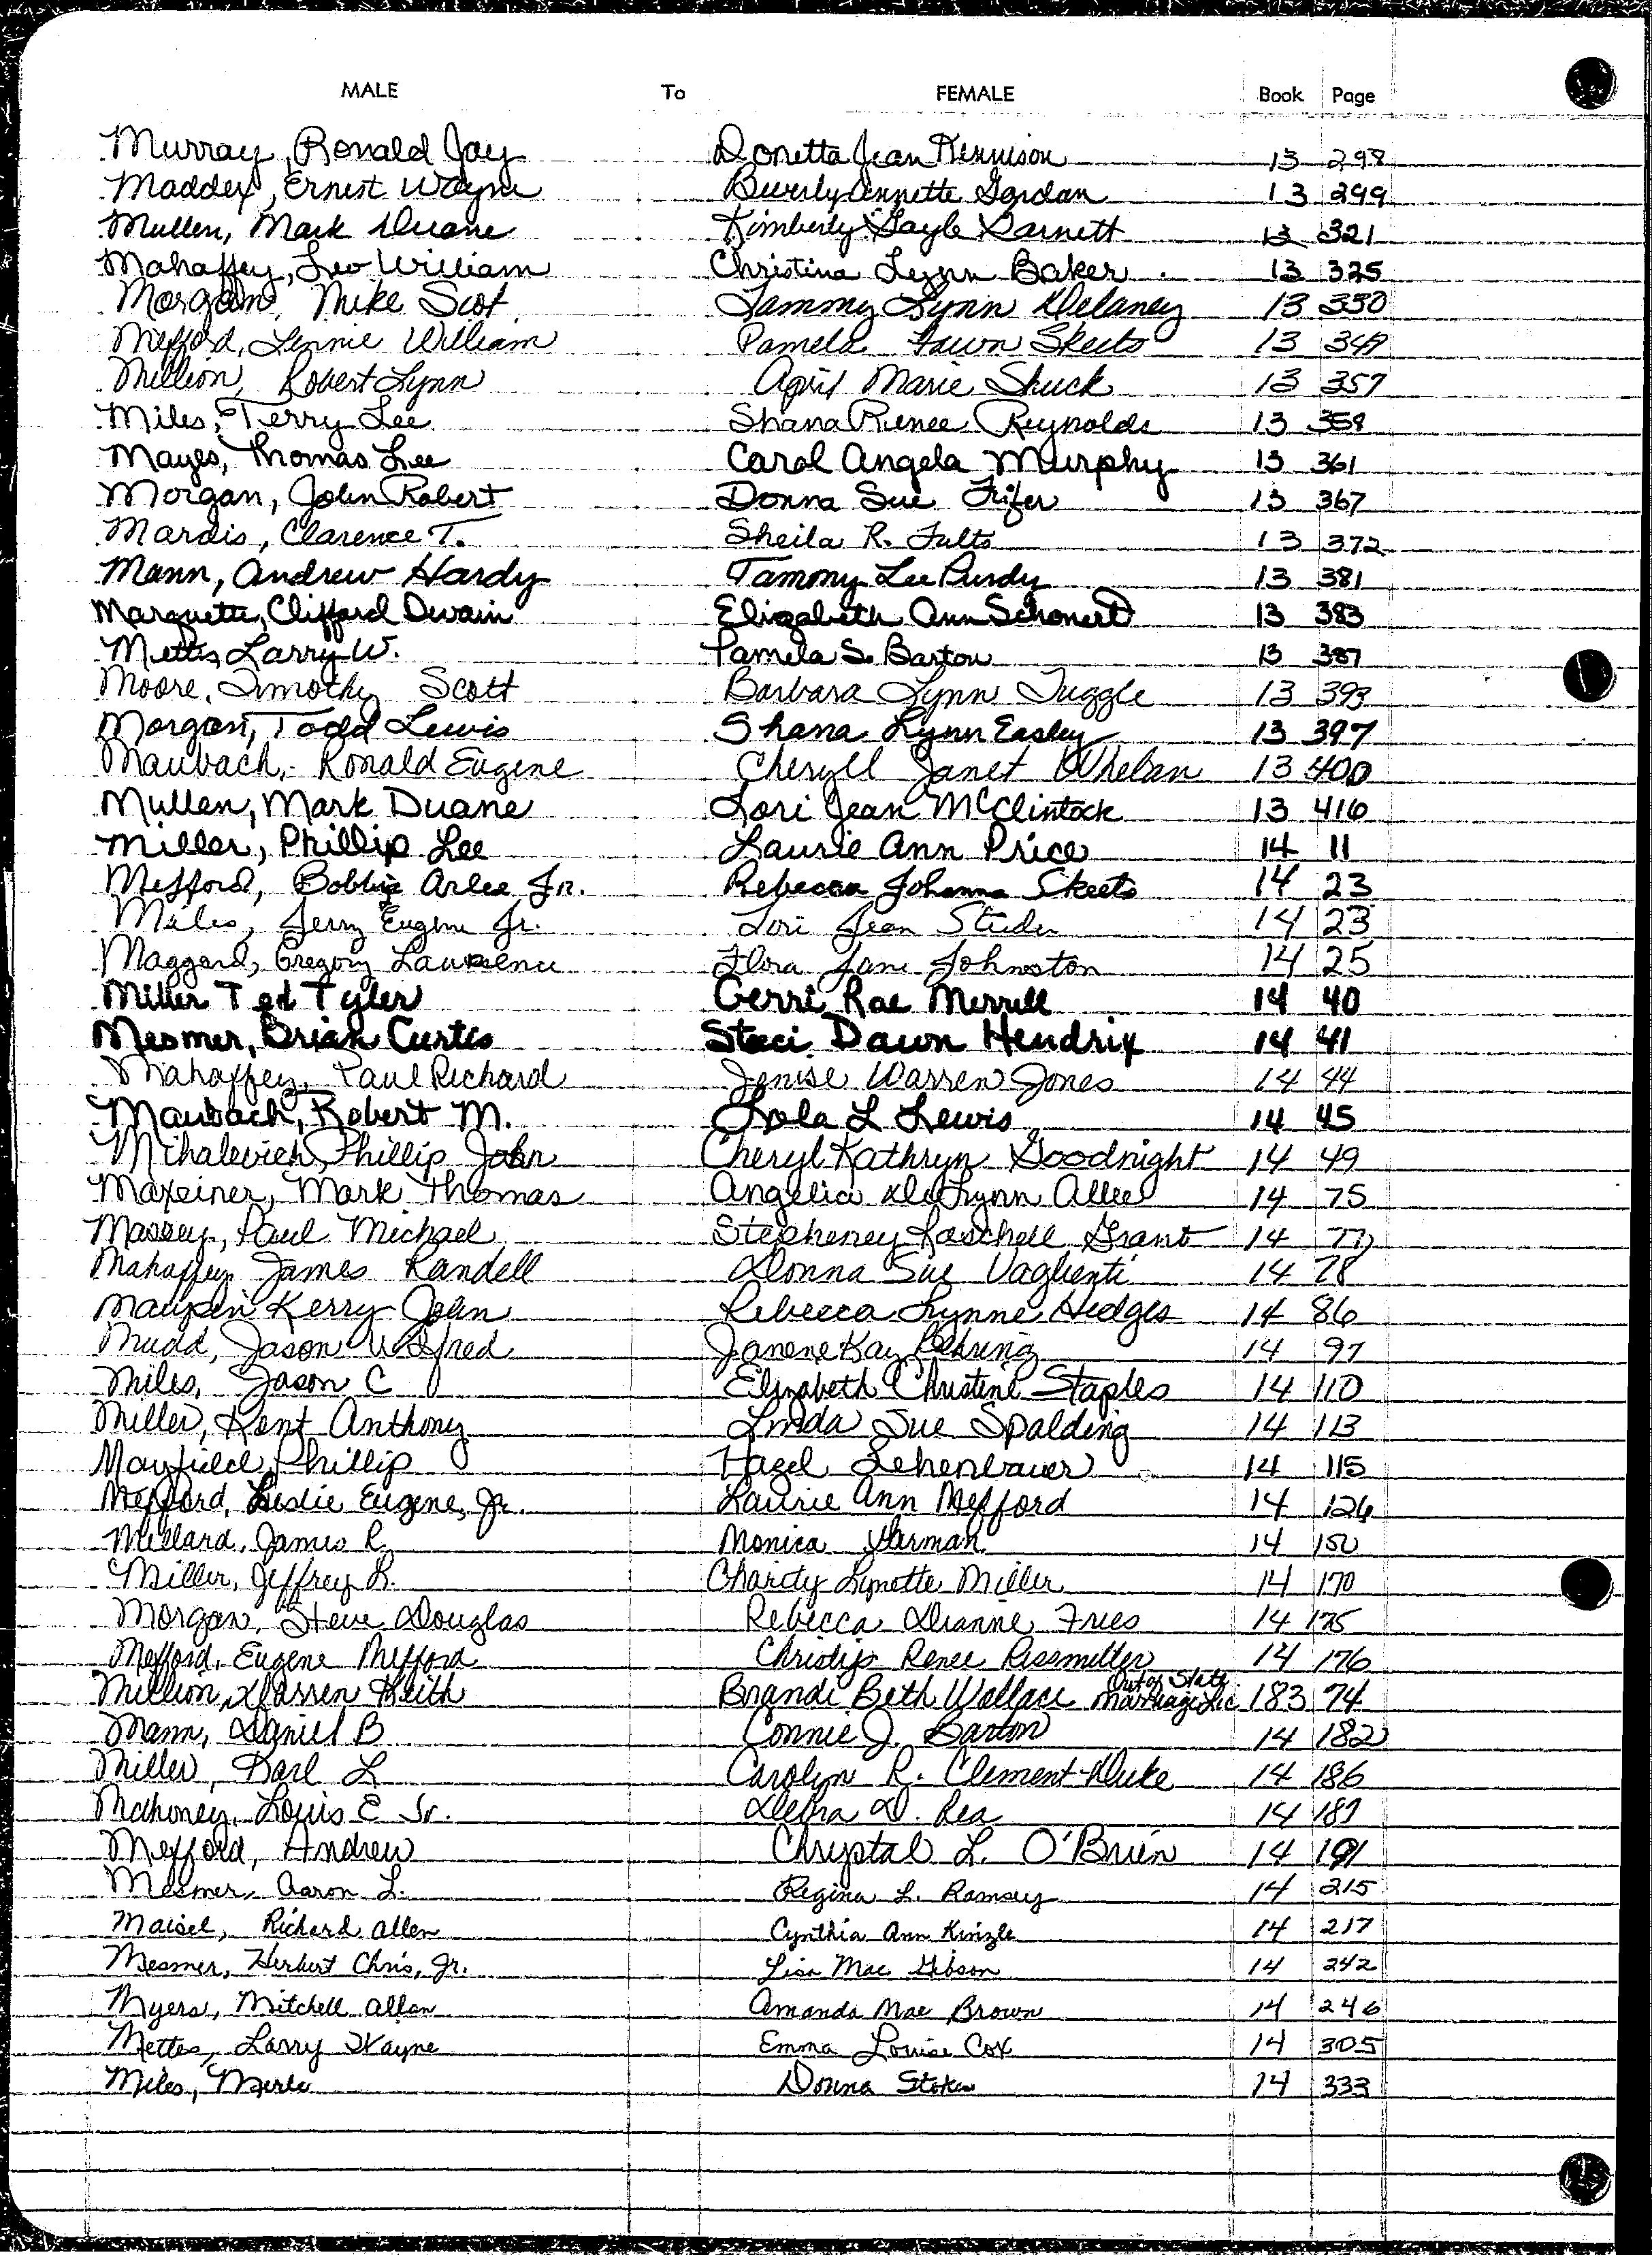 MALE To FEMALE Book Page
Murray, Ronald Jay Donetta Jean Kennison 13 298
Maddex, Ernest Wayne Beverly Annette Gordan 13 299
Mullen, Mark Duane Kimberly Gayle Garnett 13 321
Mahaffey, Leo William Christina Lynn Baker 13 325
Morgan, Mike Scot Tammy Lynn Delaney 13 330
Mefford, Lennie William Pamela Fawn Skeets 13
Million, Robert Lynn April Marie Shuck 13 357
Miles, Terry Lee Shana Renee Reynolds 13 358
Mayes, Thomas Lee Carol Angela Murphy 13 361
Morgan, John Robert Donna Sue Frifer 13 367
Mardis, Clarence T. Sheila R. Fults 13 372
Mann, Andrew Hardy Tammy Lee Purdy 13 381
Marquette, Clifford Dwain Elizabeth Ann Schonert 13 383
Mettes, Larry W. Pamela S. Barton 13 387
Moore, Timothy Scott Barbara Lynn Tuggle 13 393
Morgan, Todd Lewis Shana Lynn Easley 13 397
Maubach, Ronald Eugene Cheryll Janet Whelan 13 400
Mullen, Mark Duane Lori Jean McClintock 13 416
Miller, Phillip Lee Laurie Ann Price 14 11
Mefford, Bobbie Arlee Jr. Rebecca Johanna Skeets 14 23
Miles, Jerry Eugene Jr. Lori Jean Studer 14 23
Maggard, Gregory Lawrence Flora Jane Johnston 14 25
Miller Ted Tyler Gerri Rae Merrell 14 40
Mesmer, Brian Curtis Staci Dawn Hendrix 14 41
Mahaffey, Paul Richard Jenise Warren Jones 14 44
Maubach, Robert M. Lola L Lewis 14 45
Mihalevich, Phillip John Cheryl Kathryn Goodnight 14 49
Maxeiner, Mark Thomas Angelia DeLynn Allee 14 75
Massey, Paul Michael Stepheney Raschell Grant 14 77
Mahaffey, James Randell Donna Sue Vaglienti 14 78
Maupin Kerry John Rebecca Lynne Hedges 14 86
Mudd, Jason Wilfred Janene Kay 14 97
Miles, Jason C Elizabeth Christine Staples 14 110
Miller, Kent Anthony Linda Sue Spalding 14 113
Mayfield, Phillip Hazel Lehenbauer 14 115
Mefford, Leslie Eugene, Jr. Laurie Ann Mefford 14 126
Millard, James R. Monica Harman 14 150
Miller, Jeffrey R. Charity Lynette Miller 14 170
Morgan, Steve Douglas Rebecca Dianne Fries 14 175
Mefford, Eugene Mefford Renee Rissmiller 14 176
Million, Darren Keith Brandi Beth Wallace Out of State Marriage Lic 183 74
Mann, Daniel B Connie J. Barton 14 182
Miller, Karl L Carolyn R. Clement-Duke 14 186
Mahoney, Louis E Sr. Debra D. Rea 14 187
Mefford, Andrew Chrystal L. O'Brien 14 191
Mesmer, Aaron L. Regina L. Ramsey 14 215
Maisel, Richard Allen Cynthia Ann Kinzle 14 217
Mesmer, Herbert Chris, Jr. Lisa Mae Gibson 14 242
Myers, Mitchell Allan Amanda Mae Brown 14 246
Mettes, Larry Wayne Emma Louise Cox 14 305
Miles, Merle Donna Stokes 14 333